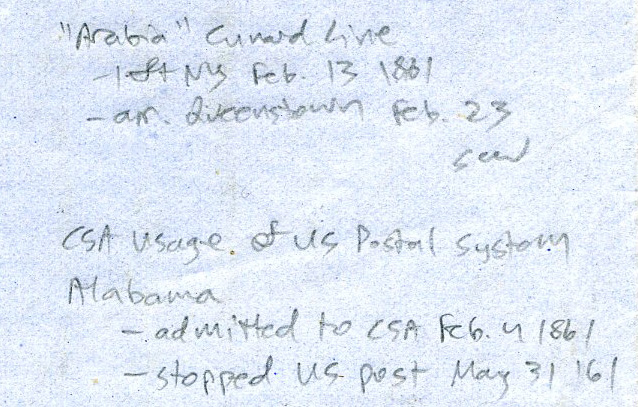 "Arabia" Cunard Line
- left NY Feb. 13 1861
- arr. Queenstown Feb. 23
CSA usage of US Postal System
Alabama
- admitted to CSA Feb. 4 1861
- stopped US post May 31 '61